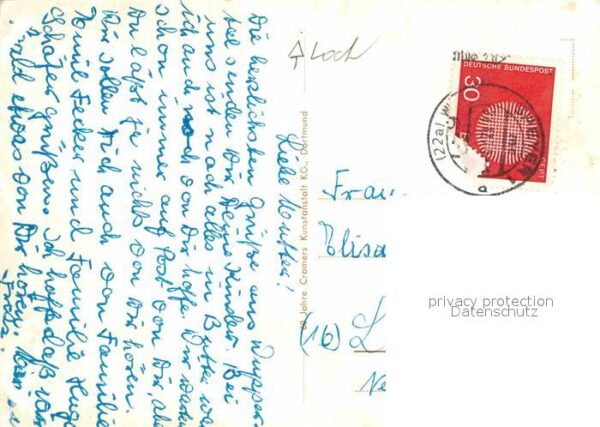 Liebe Mutter!
Die herzlichsten Grüße aus Wupper-
tal senden Dir Deine Kinder. Bei
uns ist noch alles in Butter was
ich auch von Dir hoffe. Wir warten
schon immer auf Post von Dir, aber
Du läßt ja nichts von Dir hören.
Wir sollen Dich auch von Familie
Emil Fecker und Familie Hugo
Schäfer grüßen. Ich hoffe daß wir
bald etwas von Dir hören.
Fritz.
60 Jahre Cramers Kunstanstalt KG., Dortmund
Loch
DEUTSCHE BUNDESPOST
30
(22a)
a
Frau
Elisa
(16) L
privacy protection
Datenschutz